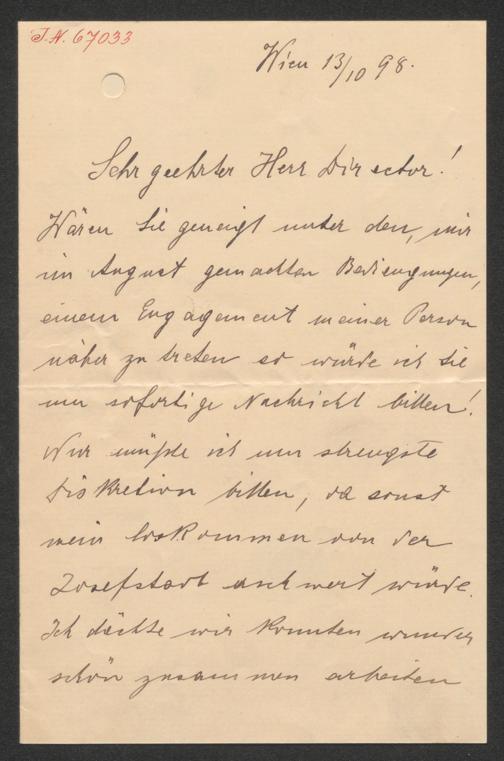 J.N. 67033
Wien 13/10 98.
Sehr geehrter Herr Director!
Wären Sie geneigt unter den, mir
im August gemachten Bedingungen,
einem Engagement meiner Person
näher zu treten so würde ich Sie
um sofortige Nachricht bitten!
Nur müßte ich um strengste
Diskretion bitten, da sonst
mein loskommen von der
Josefstadt erschwert würde.
Ich dächte wir könnten wunder
schön zusammen arbeiten